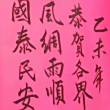 乙未年
恭賀各界
風調雨順
國泰民安